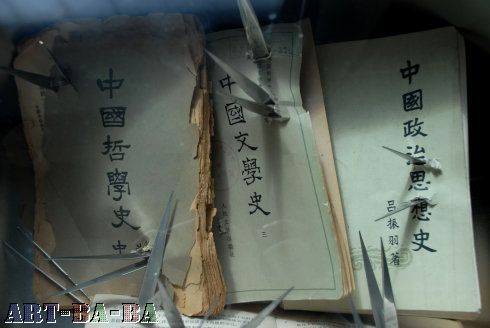 中國哲學史
中
中國文學史
三
中國政治思想史
吕振羽著
ART-BA-BA